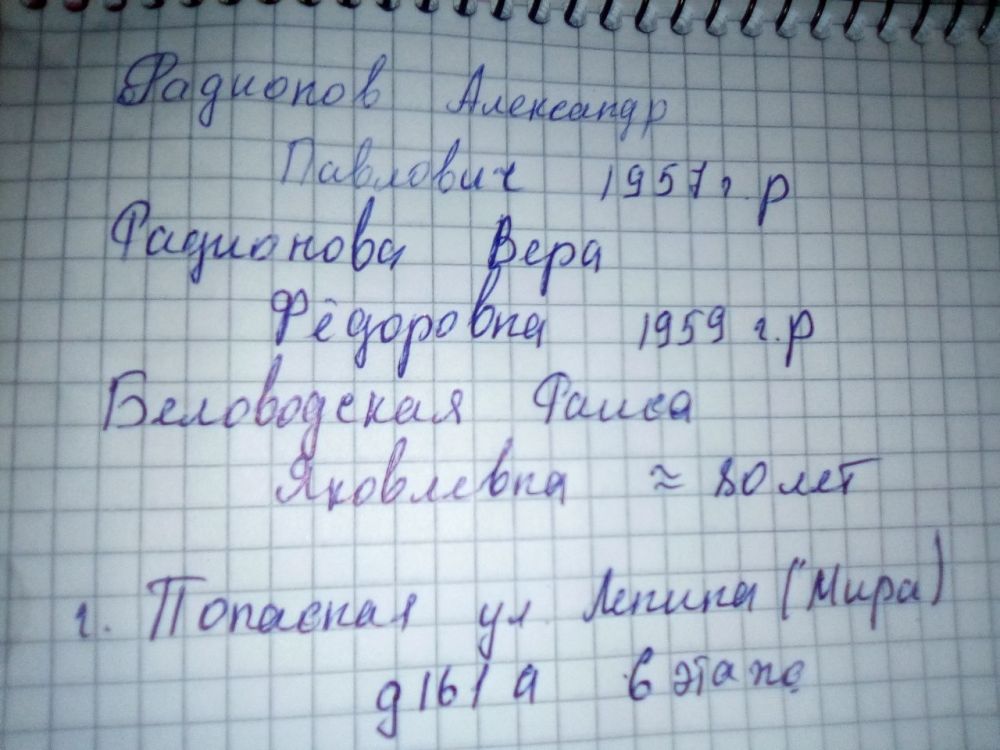 Радионов Александр
Павлович 1957 г.р
Радионова Вера
Фёдоровна 1959 г.р
Беловодская Раиса
Яковлевна ≈ 80 лет
г. Попасная ул Ленина (Мира)
д 161 а 6 этаж